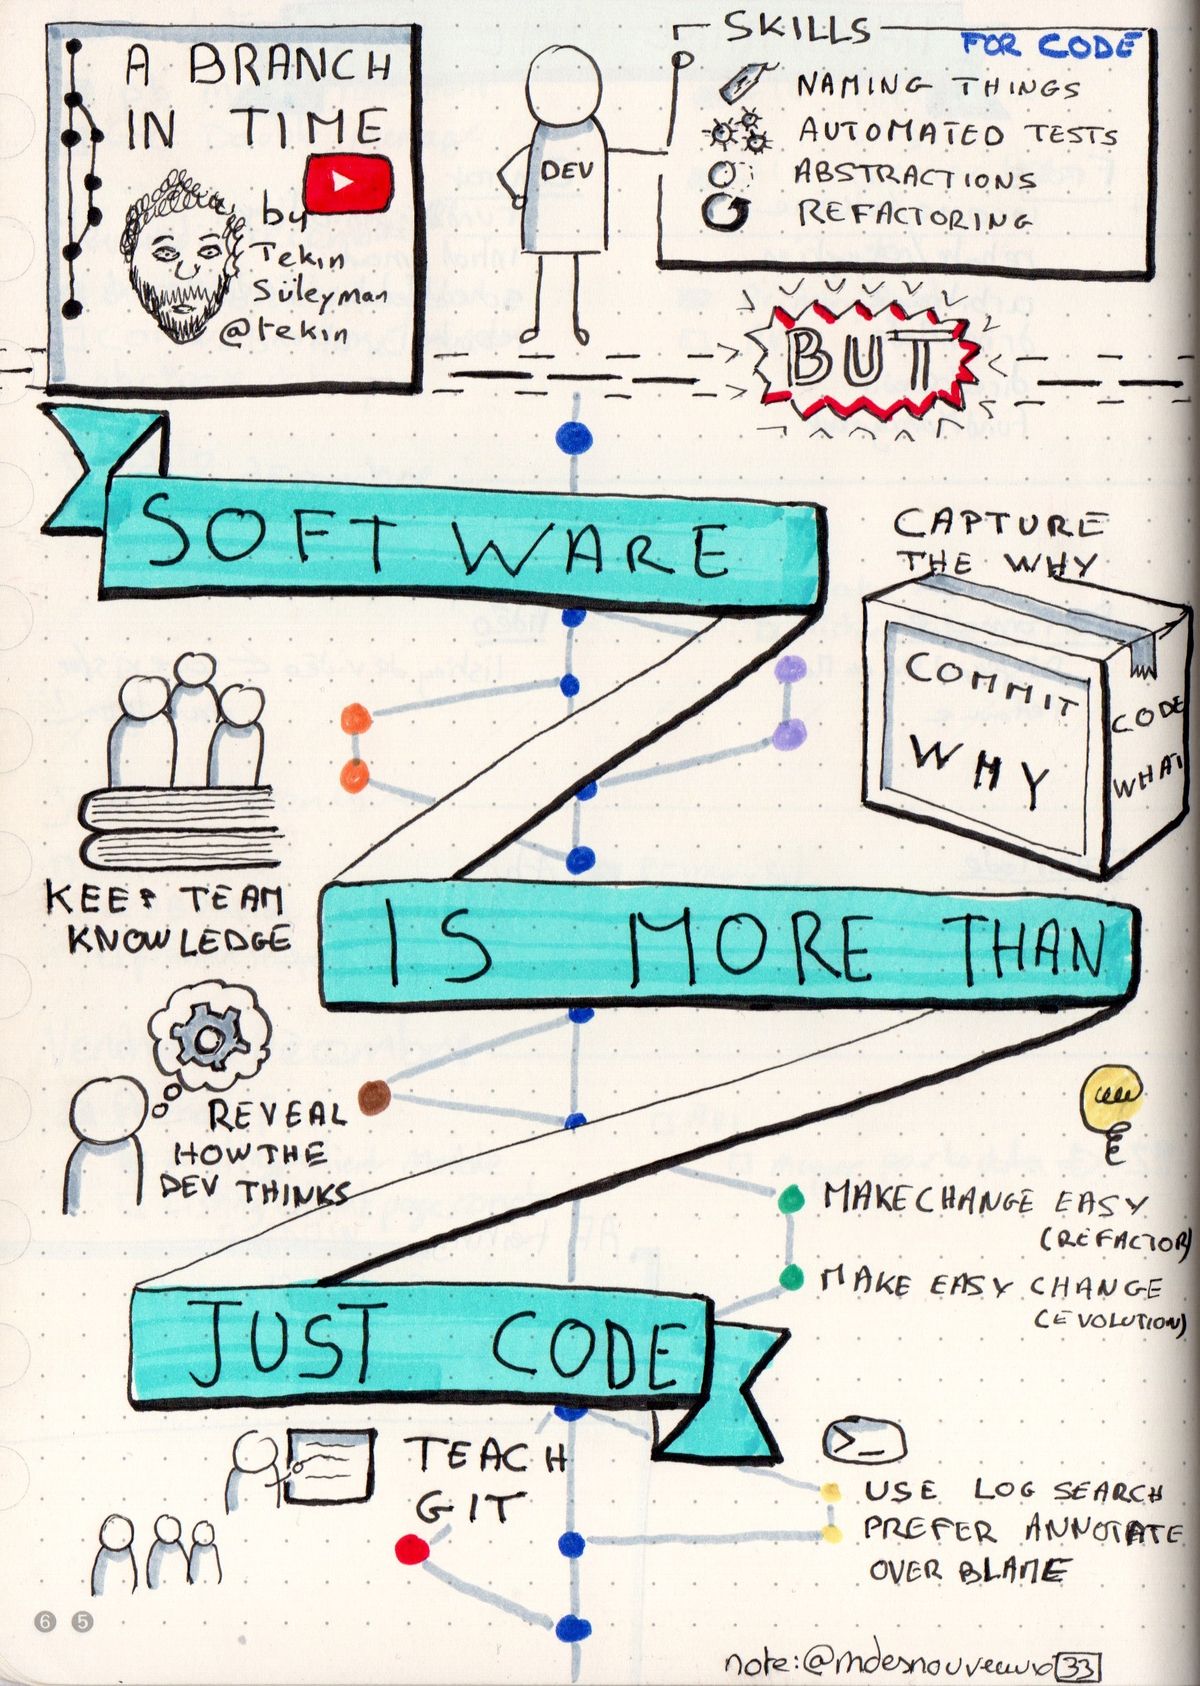 A BRANCH
IN TIME
by
Tekin
Süleyman
@tekin
DEV
SKILLS
FOR CODE
NAMING THINGS
AUTOMATED TESTS
ABSTRACTIONS
REFACTORING
BUT
SOFTWARE
CAPTURE
THE WHY
COMMIT
WHY
CODE
WHAT
KEEP TEAM
KNOWLEDGE
IS MORE THAN
REVEAL
HOW THE
DEV THINKS
MAKE CHANGE EASY
(REFACTOR)
MAKE EASY CHANGE
(EVOLUTION)
JUST CODE
TEACH
GIT
>_
USE LOG SEARCH
PREFER ANNOTATE
OVER BLAME
6 5
note:@mdesnouveaux 33